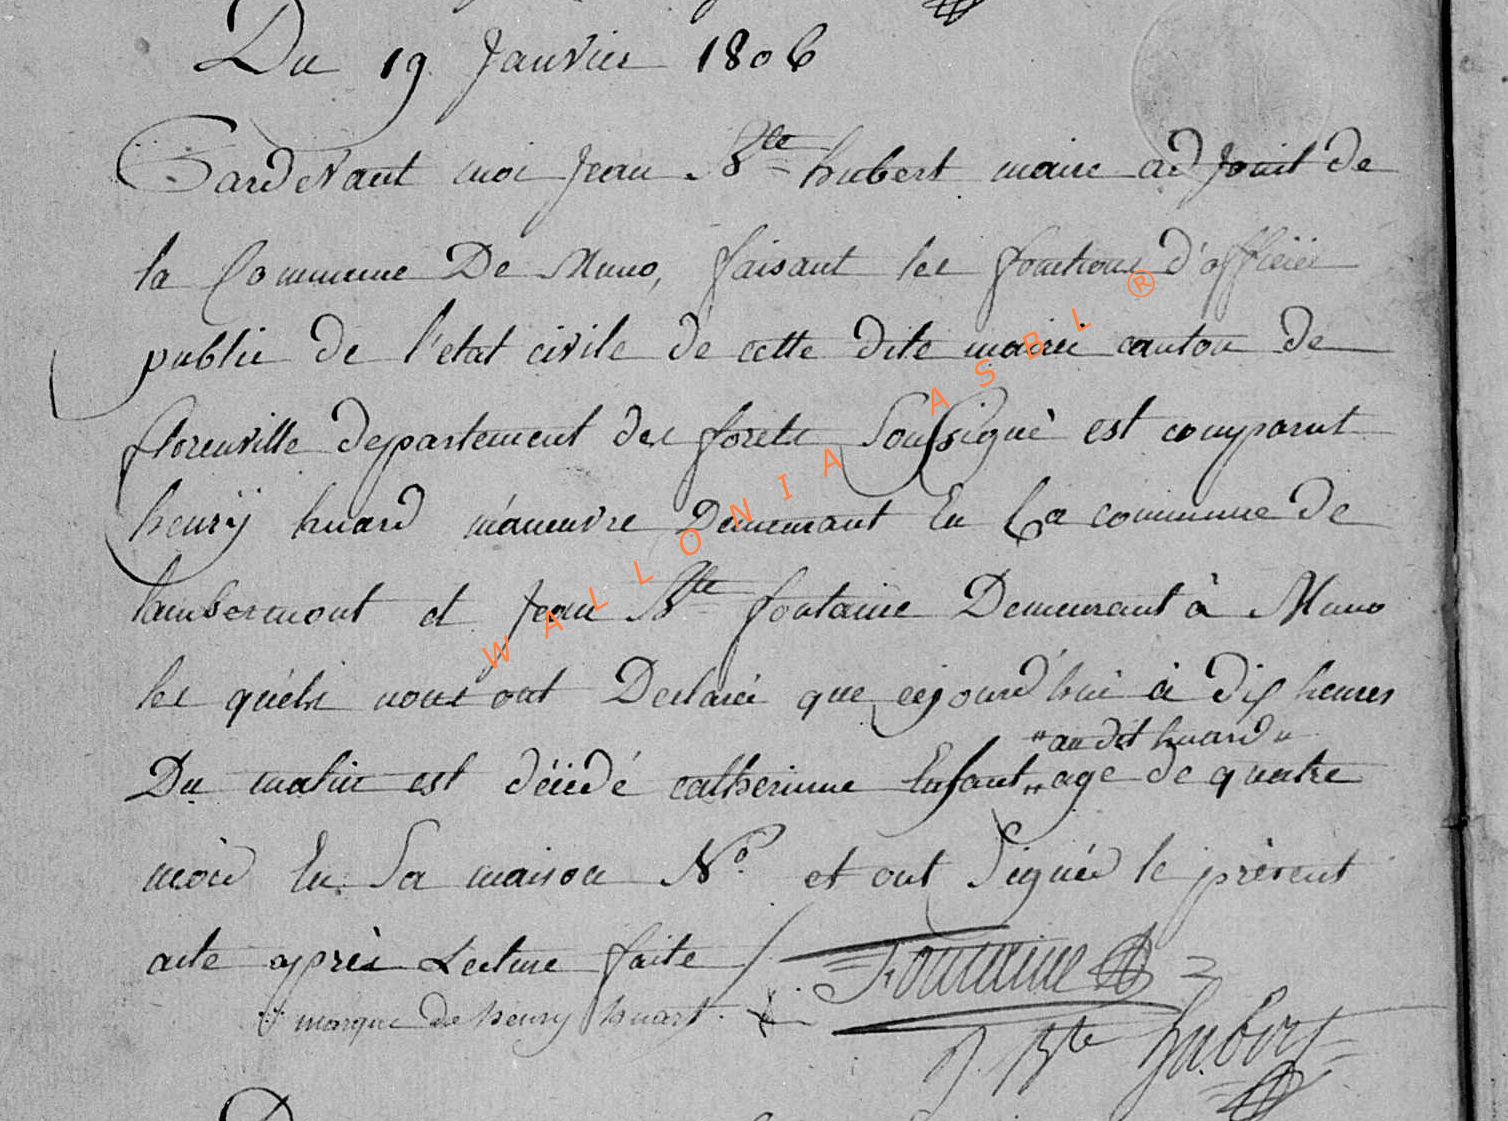 Du 19 Janvier 1806
Pardevant moi Jean Bte hubert maire adjoint de
la Commune De Muno, faisant les fonctions d'officier
public de l'état civile de cette dite mairie canton de
florenville departement des forets Soussigné est comparut
henry huard manœuvre Demeurant En La commune de
lambermont et Jean Bte fontaine Demeurant à Muno
les quéls nous ont Declaré que cejourd'hui à dix heures
"au dit huard"
Du matin est décédé catherinne Enfant " age de quatre
mois En Sa maison No. et ont Signés le présent
acte après Lecture faite /. Fontaine
marque de henry huart.
J. Bte hubert
WALLONIA ASBL ®